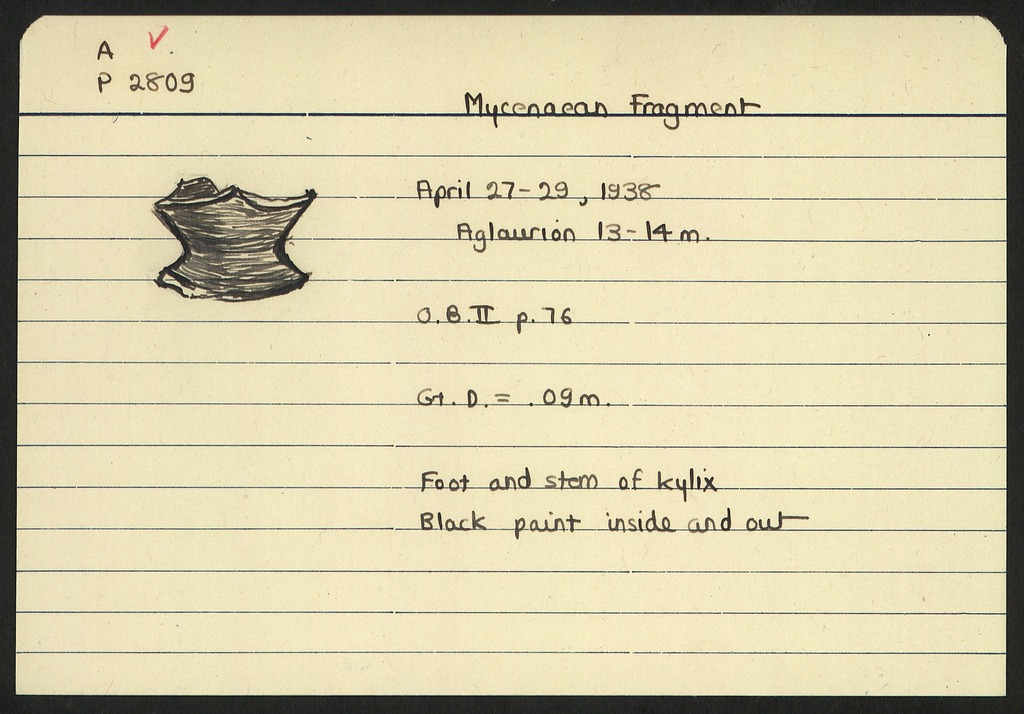 A
P 2809
Mycenaean Fragment
April 27-29, 1938
Aglaurion 13-14 m.
O.B.II p. 76
Gt. D. = .09 m.
Foot and stem of kylix
Black paint inside and out